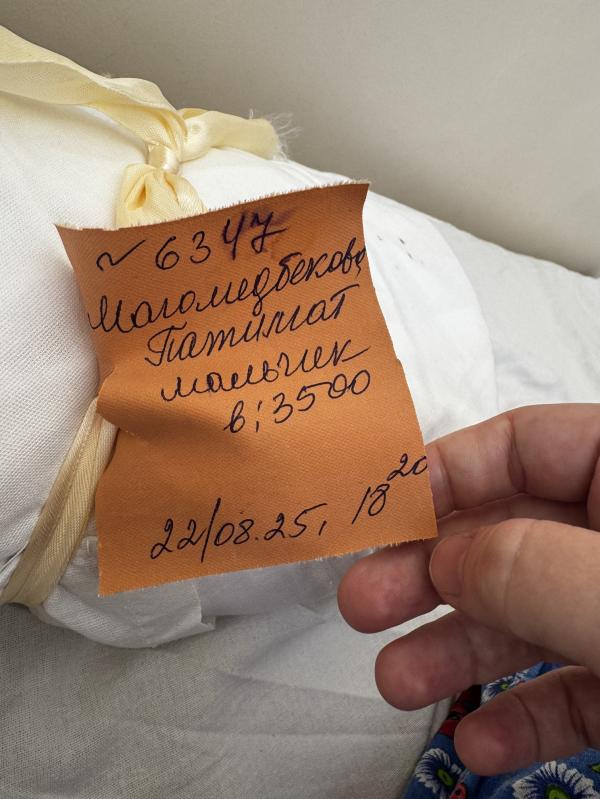 ~ 6347
Магомедбекова
Патимат
мальчик
в; 3500
22/08.25, 18 20